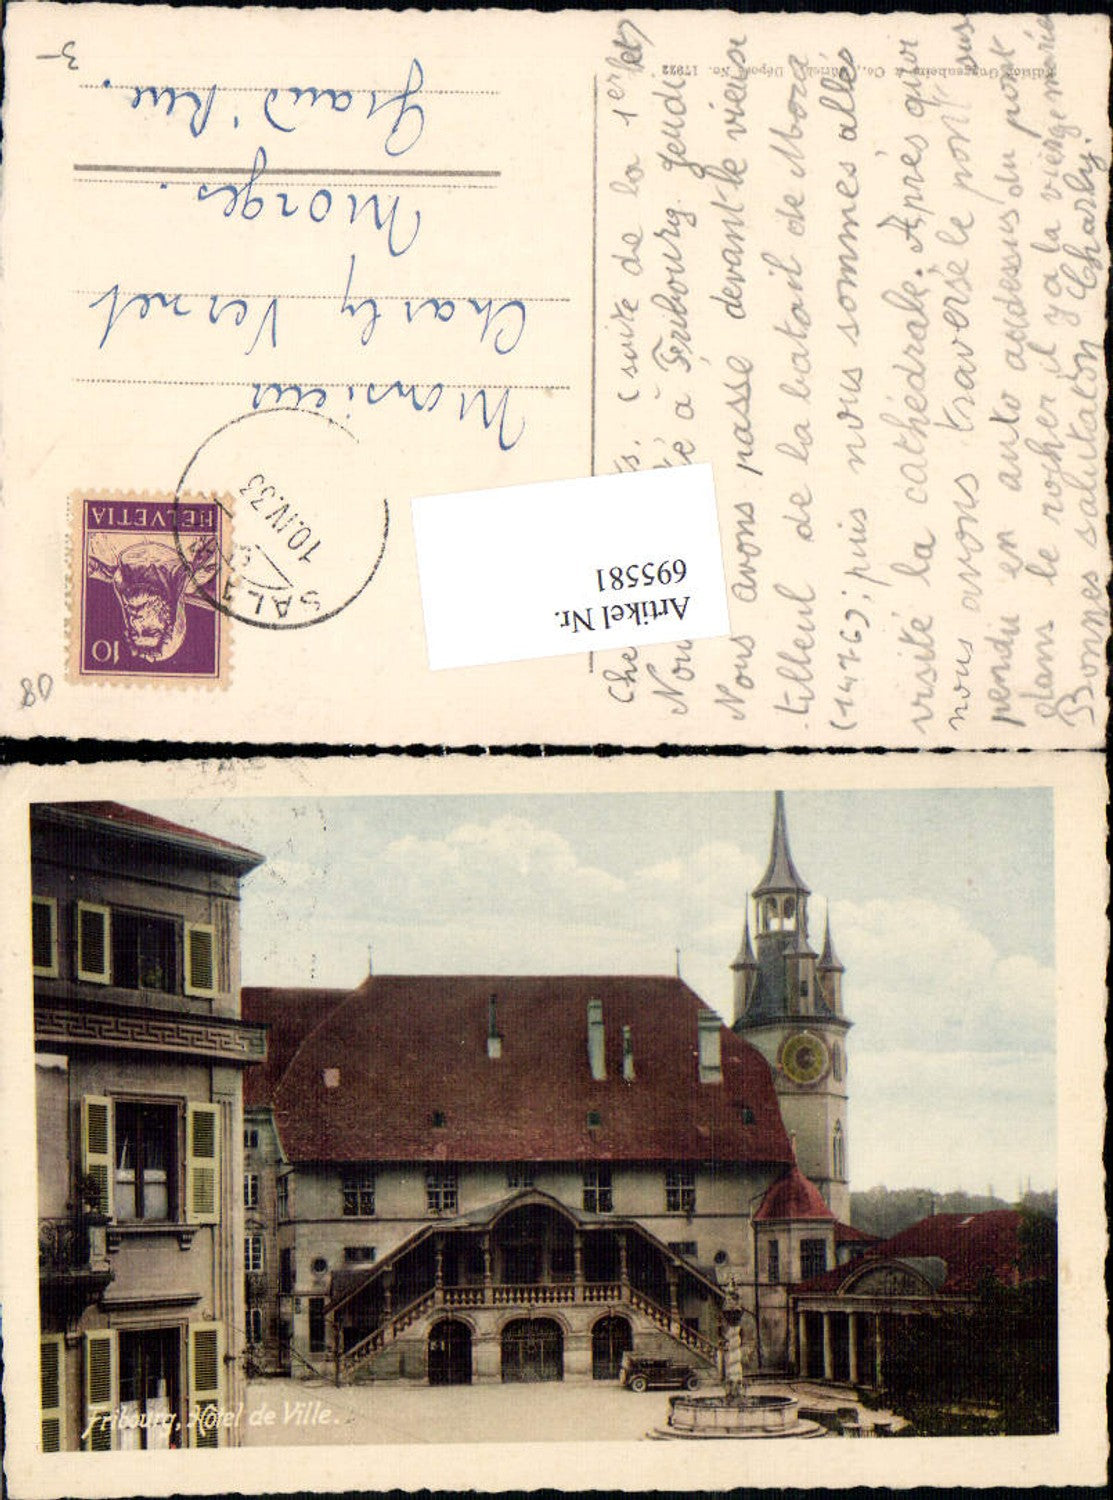 Chers. (suite de la 1ère
à Fribourg. Jeudi
Nous avons passé devant le vieux
tilleul de la batail de Mora
(1476); puis nous sommes allés
visité la cathédrale. Après quoi
nous avons traversé le pont sus-
pendu en auto addessus du pont
dans le rocher il y a la vierge marie
Bonnes salutation Charly.
Edition Guggenheim & Co., Zürich Dépôt No. 17922
Monsieur
Charly Vernet
Morges.
Grand'Rue.
3-
80
HELVETIA
10
10.IV.33
Artikel Nr.
695581
Fribourg, Hôtel de Ville.